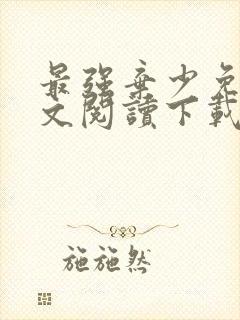 最强弃少免
文閱讀下載
施施然